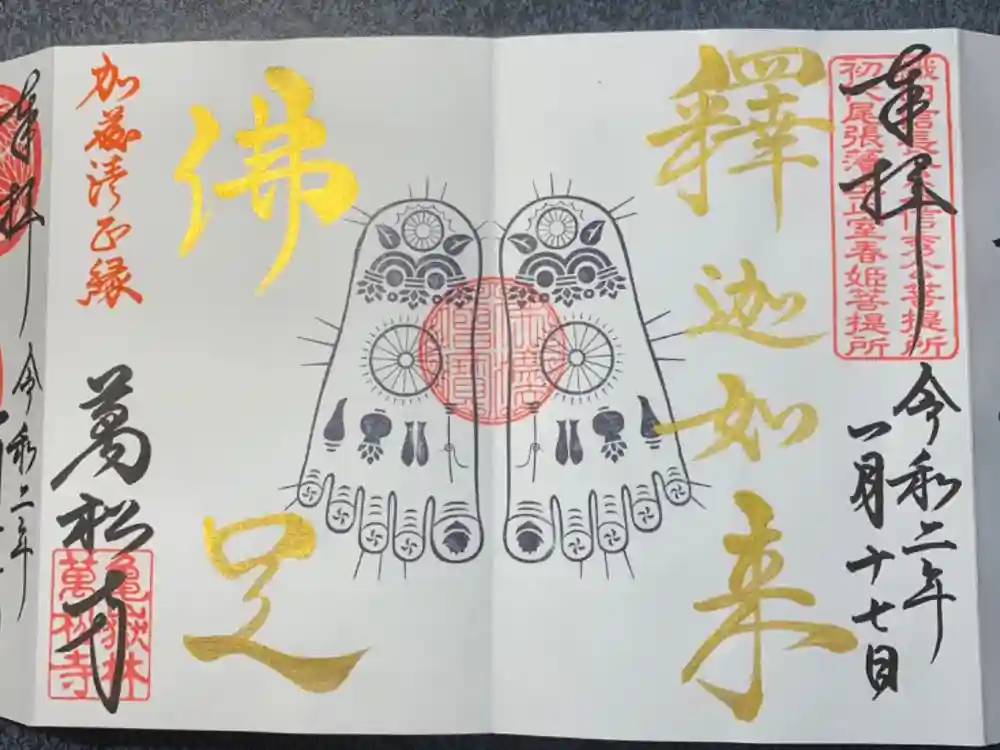 奉拝
織田信長 信秀公菩提所
初代尾張藩主正室春姫菩提所
令和二年
一月十七日
釋迦如来
佛足
加藤清正縁
萬松寺
亀嶽林
萬松寺
奉拝
令和二年